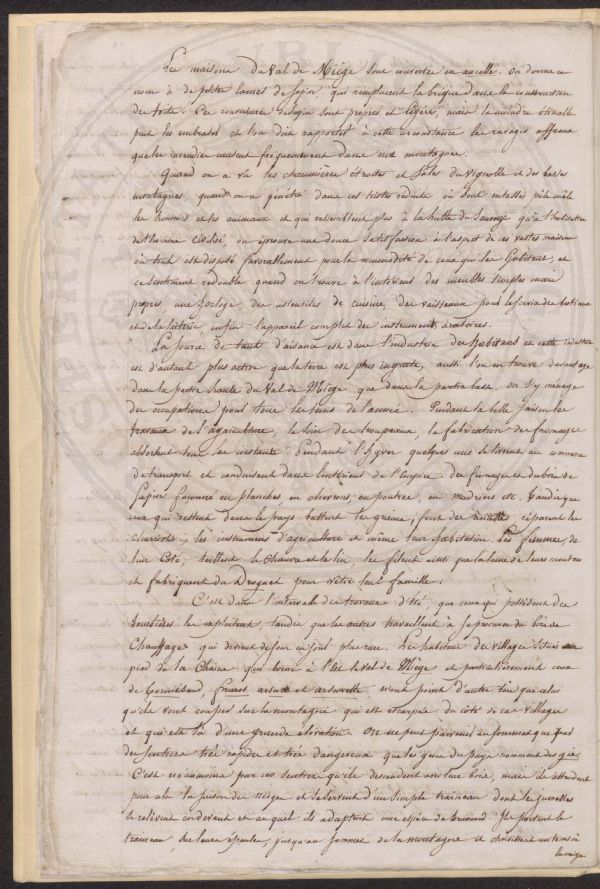 Les maisons du Val de Miège sont couvertes en ancelles. On donne ce
nom à de petites lames de sapin, qui remplacent la brique dans la construction
des toits. Ces couvertures de sapin sont propres et légères, mais la moindre étincelle
peut les embraser et l'on doit rapporter à cette circonstance les ravages affreux
que les incendies causent fréquemment dans nos montagnes.
Quand on a vu les chaumières étroites et sales du vignoble et des basses
montagnes, quand on a pénétré dans ces tristes réduits où sont entassés pêle mêle
les hommes et les animaux et qui ressemblent plus à la hutte du Sauvage qu'à l'habitation
de l'homme civilisé, on éprouve une douce satisfaction à l'aspect de ces vastes maisons
où tout est disposé favorablement pour la commodité de ceux qui les habitent, et
ce sentiment redouble quand on trouve à l'intérieur des meubles simples mais
propres, une horloge, des ustensiles de cuisine, des vaisseaux pour le service des bestiaux
et de la laiterie, enfin l'appareil complet des instruments aratoires.
La source de tant d'aisance est dans l'industrie des habitans et cette industrie
est d'autant plus active que la terre est plus ingrate, aussi l'on en trouve davantage
dans la partie haute du Val de Miège que dans la partie basse. On s'y ménage
des occupations pour tous les tems de l'année. Pendant la belle saison les
travaux de l'agriculture, le soin des troupeaux, la fabrication des fromages
absorbent tous les instants. Pendant l'hyver quelques uns se livrent au commerce
de transport et conduisent dans l'intérieur de l'Empire des fromages et du bois de
sapin façonné en planches en chevrons, en poutres, en madriers etc. tandis que
ceux qui restent dans le pays battent les grains, font des réparent les
charriots, les instrumens d'agriculture et même leur habitation. Les femmes de
leur côté, teillent le chanvre et le lin, le filent ainsi que la laine de leurs moutons
et fabriquent du Droguet pour vêtir leur famille.
C'est dans l'intervale des travaux d'été, que ceux qui possèdent des
tourbières les exploitent, tandis que les autres travaillent à se procurer du bois de
chauffage qui devient de jour en jour plus rare. Les habitans des villages situés au
pied de la Chaîne qui borne à l'Est le Val de Miège et particulièrement ceux
de Gevrésaud, fraroz arsure et arsurette, n'ont point d'autre bois que celui
qu'ils vont couper sur la montagne qui est escarpée du côté de ces villages
et qui est là d'une grande élévation. On ne peut parvenir au sommet que par
des sentiers très rapides et très dangereux que les gens du pays nomment des
C'est néanmoins par ces sentiers qu'ils descendent avec leur bois, mais ils attendent
pour cela la saison des neiges et se servent d'un simple traineau dont les jumelles
se relèvent en devant et auquel ils adaptent une espèce de brancard. Ils portent le
traineau sur leurs épaules, jusqu'au sommet de la montagne et choisissent un tems où
la neige